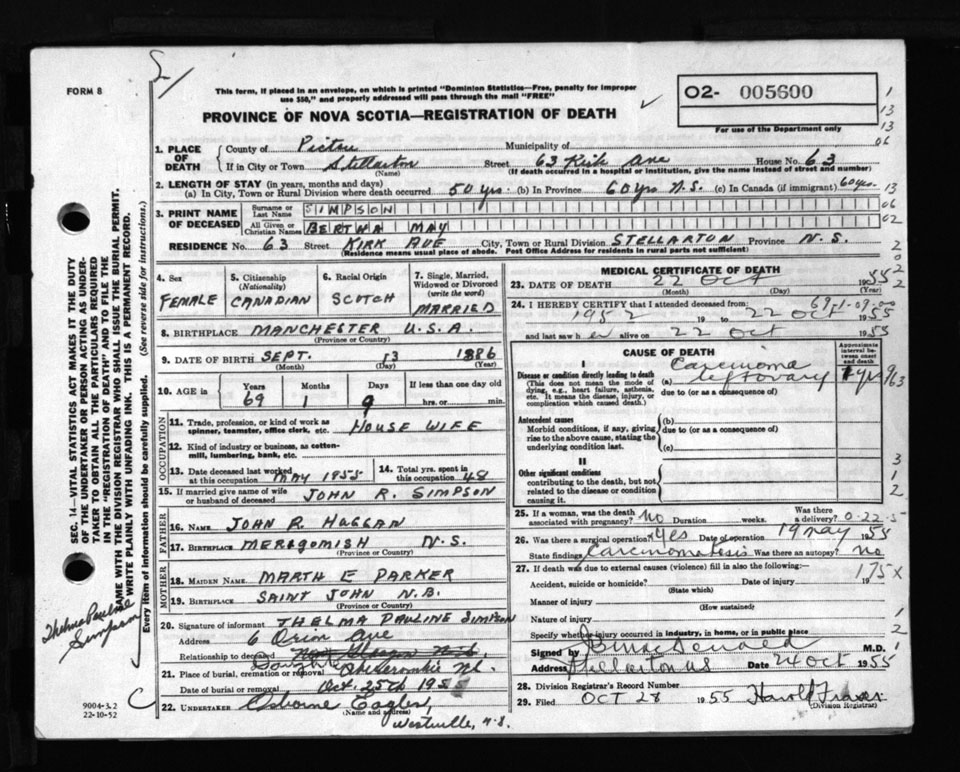 FORM 8
This form, if placed in an envelope, on which is printed "Dominion Statistics—Free, penalty for improper
use $50," and properly addressed will pass through the mail "FREE"
PROVINCE OF NOVA SCOTIA—REGISTRATION OF DEATH
O2- 005600
For use of the Department only
1. PLACE OF DEATH
County of Pictou Municipality of
If in City or Town Stellarton Street 63 Kirk Ave House No. 63
(Name) (If death occurred in a hospital or institution, give the name instead of street and number)
2. LENGTH OF STAY (in years, months and days)
(a) In City, Town or Rural Division where death occurred 50 yrs. (b) In Province 60 yrs N.S. (c) In Canada (if immigrant) 60 yrs.
3. PRINT NAME OF DECEASED
Surname or Last Name SIMPSON
All Given or Christian Names BERTHA MAY
RESIDENCE No. 63 Street KIRK AVE City, Town or Rural Division STELLARTON Province N.S.
(Residence means usual place of abode. Post Office Address for residents in rural parts not sufficient)
4. Sex FEMALE
5. Citizenship (Nationality) CANADIAN
6. Racial Origin SCOTCH
7. Single, Married, Widowed or Divorced (write the word) MARRIED
8. BIRTHPLACE MANCHESTER U.S.A.
(Province or Country)
9. DATE OF BIRTH SEPT. 13 1886
(Month) (Day) (Year)
10. AGE in Years 69 Months 1 Days 9 If less than one day old hrs. or min.
OCCUPATION
11. Trade, profession, or kind of work as spinner, teamster, office clerk, etc. HOUSE WIFE
12. Kind of industry or business, as cotton-mill, lumbering, bank, etc.
13. Date deceased last worked at this occupation MAY 1955
14. Total yrs. spent in this occupation 48
15. If married give name of wife or husband of deceased JOHN R. SIMPSON
FATHER
16. NAME JOHN R. HAGGAN
17. BIRTHPLACE MERIGOMISH N.S.
(Province or Country)
MOTHER
18. MAIDEN NAME MARTH E PARKER
19. BIRTHPLACE SAINT JOHN N.B.
(Province or Country)
20. Signature of informant THELMA PAULINE SIMPSON
Address 6 Orion Ave
Relationship to deceased
Daughter
21. Place of burial, cremation or removal Abercrombie N.S.
Date of burial or removal Oct. 25th 1955
22. UNDERTAKER Osborne Eagles,
(Name and address)
Westville, N.S.
MEDICAL CERTIFICATE OF DEATH
23. DATE OF DEATH 22 Oct 1955
(Month) (Day) (Year)
69-1-09-00
24. I HEREBY CERTIFY that I attended deceased from:
1952 19 to 22 Oct 1955
and last saw her alive on 22 Oct 1955
CAUSE OF DEATH
Approximate interval between onset and death
I
Disease or condition directly leading to death
(This does not mean the mode of dying, e.g., heart failure, asthenia, etc. It means the disease, injury, or complication which caused death.)
(a) Carcinoma left ovary
due to (or as a consequence of)
Antecedent causes
Morbid conditions, if any, giving rise to the above cause, stating the underlying condition last.
(b)
due to (or as a consequence of)
(c)
II
Other significant conditions
contributing to the death, but not related to the disease or condition causing it.
25. If a woman, was the death associated with pregnancy? No Duration weeks. Was there a delivery?
0-22-5
26. Was there a surgical operation? Yes Date of operation 19 May 1955
State findings Carcinomatosis Was there an autopsy? No
27. If death was due to external causes (violence) fill in also the following:—
Accident, suicide or homicide? Date of injury 19
(State which)
175X
Manner of injury
(How sustained)
Nature of injury
Specify whether injury occurred in industry, in home, or in public place
Signed by M.D.
Address Stellarton NS Date 24 Oct 1955
28. Division Registrar's Record Number
29. Filed OCT 28 1955 Harold Fraser
(Division Registrar)
SEC. 14—VITAL STATISTICS ACT MAKES IT THE DUTY
OF THE UNDERTAKER OR PERSON ACTING AS UNDER-
TAKER TO OBTAIN ALL THE PARTICULARS REQUIRED
IN THE "REGISTRATION OF DEATH" AND TO FILE THE
SAME WITH THE DIVISION REGISTRAR WHO SHALL ISSUE THE BURIAL PERMIT.
WRITE PLAINLY WITH UNFADING INK. THIS IS A PERMANENT RECORD.
Every item of information should be carefully supplied. (See reverse side for instructions.)
Thelma Pauline
Simpson
C
9004-3.2
22-10-52
1
13
13
06
13
06
02
2
0
2
2
963
3
1
2
1
2
1